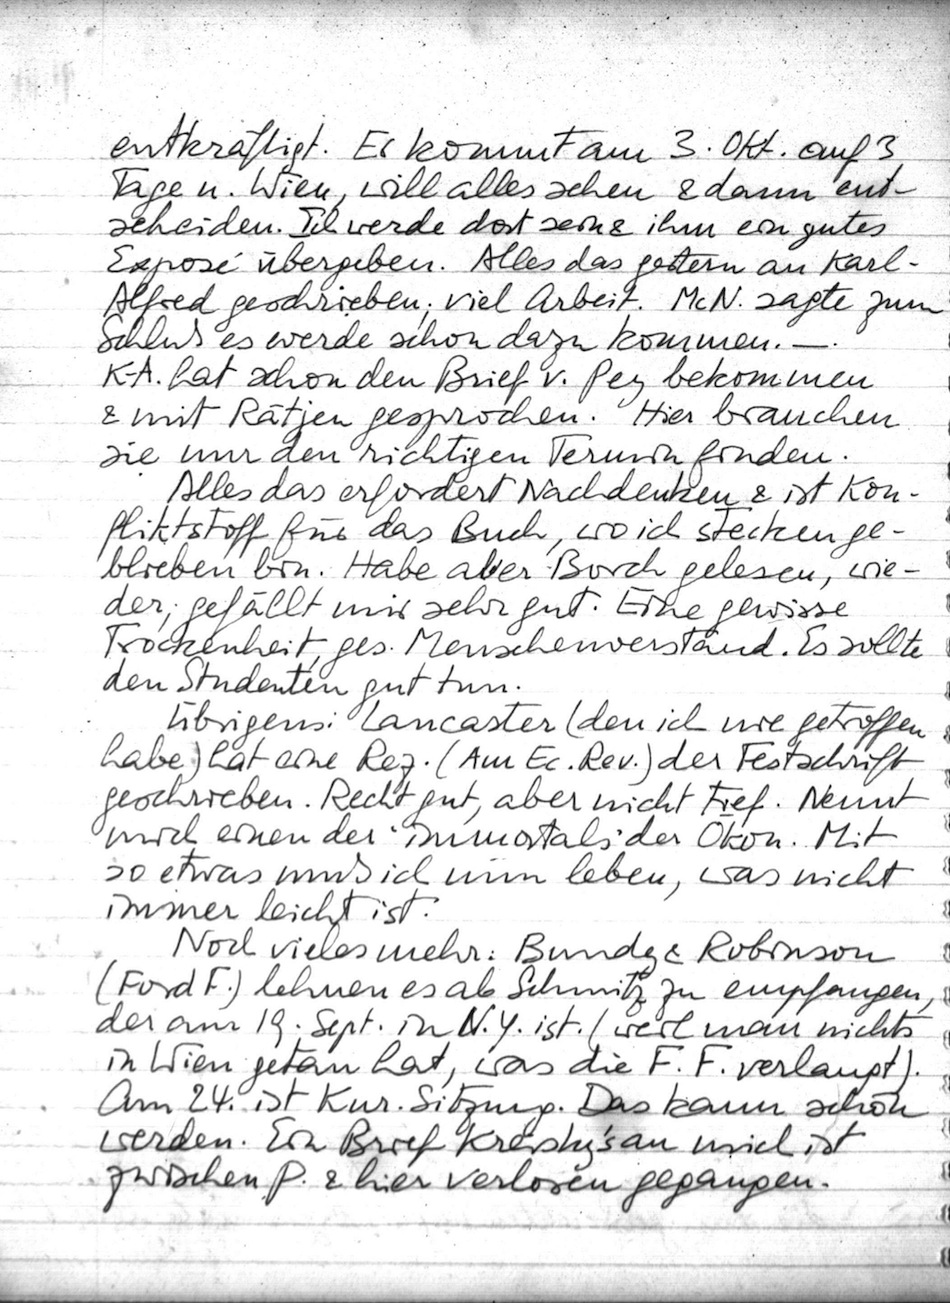 entkräftigt. Er kommt am 3. Okt. auf 3
Tage n. Wien, will alles sehen & dann ent-
scheiden. Ich werde dort sein & ihm ein gutes
Exposé übergeben. Alles das gestern an Karl-
Alfred geschrieben; viel Arbeit. McN. sagte zum
Schluß es werde schon dazu kommen. —.
K-A. hat schon den Brief v. Pez bekommen
& mit Rätjen gesprochen. Hier brauchen
sie nur den richtigen Termin finden.
Alles das erfordert Nachdenken & ist Kon-
fliktstoff für das Buch, wo ich stecken ge-
blieben bin. Habe aber Borch gelesen, wie-
der; gefällt mir sehr gut. Eine gewisse
Trockenheit, ges. Menschenverstand. Es sollte
den Studenten gut tun.
Übrigens: Lancaster (den ich nie getroffen
habe) hat eine Rez. (Am Ec. Rev.) der Festschrift
geschrieben. Recht gut, aber nicht tief. Nennt
mich einen der "immortals" der Ökon. Mit
so etwas muß ich nun leben, was nicht
immer leicht ist.
Noch vieles mehr: Bundy & Robinson
(Ford F.) lehnen es ab Schmitz zu empfangen,
der am 19. Sept. in N.Y. ist. (weil man nichts
in Wien getan hat, was die F. F. verlangt).
Am 24. ist Kur. Sitzung. Das kann schön
werden. Ein Brief Kreisky's an mich ist
zwischen P. & hier verloren gegangen.